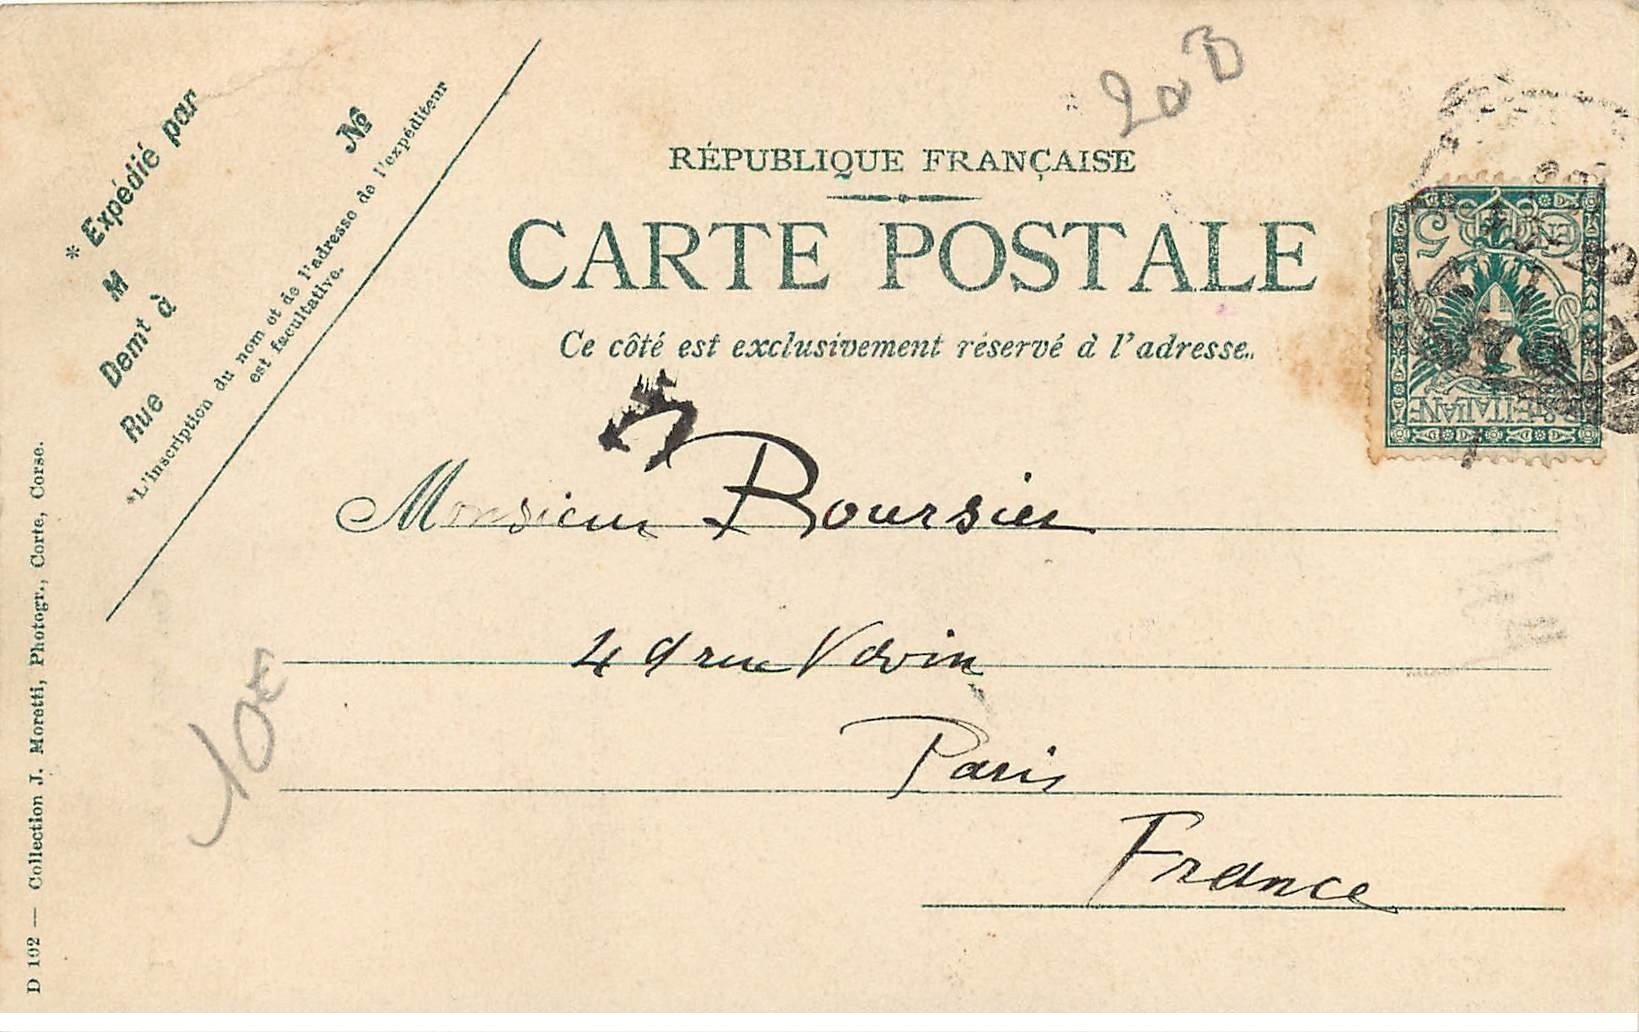 * Expédié par
M
Demt à
Rue
No
*L'inscription du nom et de l'adresse de l'expéditeur
est facultative.
20 B
RÉPUBLIQUE FRANÇAISE
CARTE POSTALE
Ce côté est exclusivement réservé à l'adresse.
5
Monsieur Boursier
49 rue Vavin
Paris
France
10€
D 192 — Collection J. Moretti, Photogr., Corte, Corse.